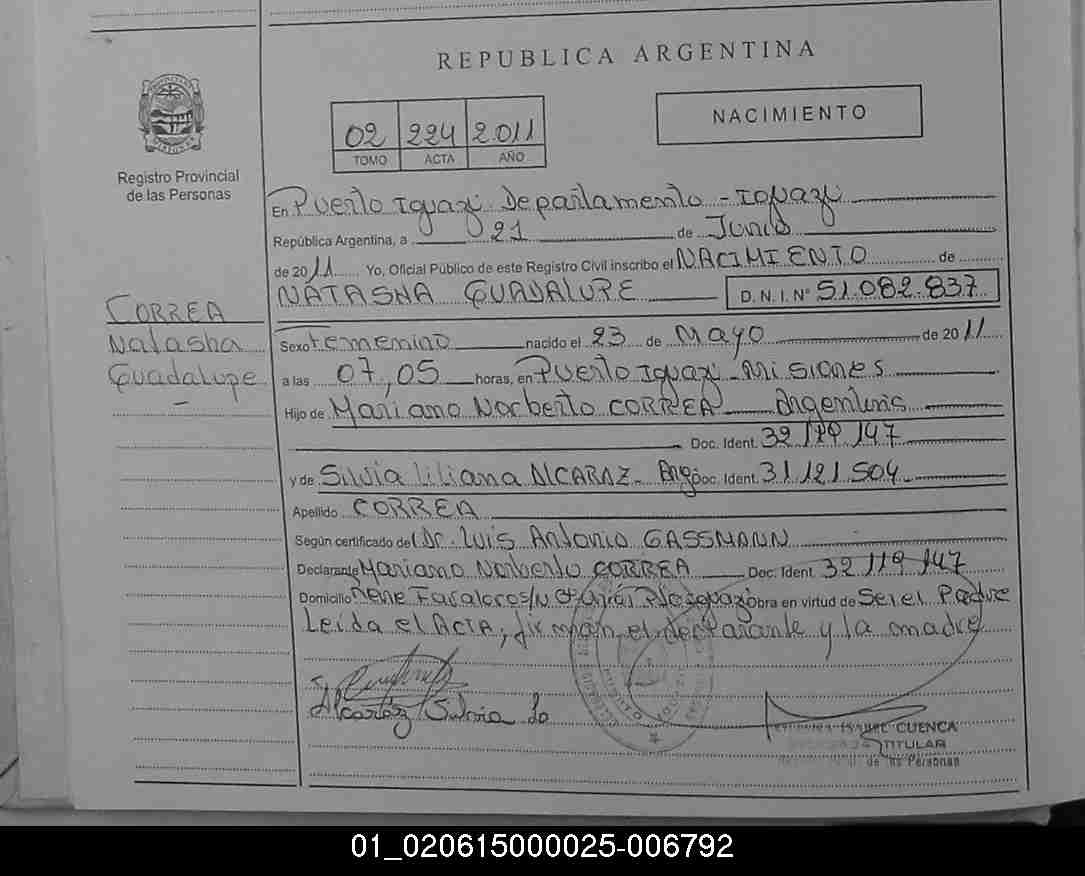 REPUBLICA ARGENTINA
NACIMIENTO
02 224 2.011
TOMO ACTA AÑO
Registro Provincial
de las Personas
En Puerto Iguazú Departamento - Iguazú
República Argentina, a 21 de Junio
de 2011 Yo, Oficial Público de este Registro Civil inscribo el NACIMIENTO de
NATASHA GUADALUPE D.N.I. N° 51.082.837
CORREA
Natasha
Guadalupe
Sexo Femenino nacido el 23 de Mayo de 2011
a las 07,05 horas, en Puerto Iguazú - Misiones
Hijo de Mariano Norberto CORREA Argentino
Doc. Ident. 32 119 147
y de Silvia Liliana ALCARAZ - Arg Doc. Ident. 31 121 504
Apellido CORREA
Según certificado de Dr. Luis Antonio GASSMANN
Declarante Mariano Norberto CORREA Doc. Ident. 32 119 147
Domicilio obra en virtud de Ser el Padre
Leida el ACTA, firman, el declarante y la madre
Alcaraz Silvia
ISABEL CUENCA
TITULAR
de las Personas
01_020615000025-006792